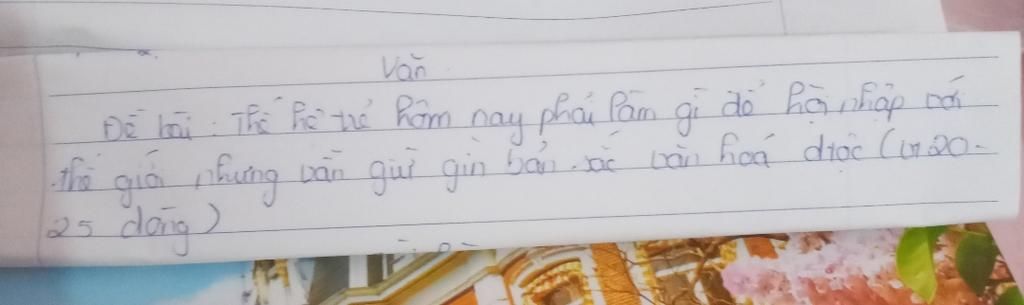 Văn
Đề bài: Thế hệ trẻ hôm nay phải làm gì để hội nhập với
thế giới, nhưng vẫn giữ gìn bản sắc văn hoá dtộc (từ 20-
25 dòng)